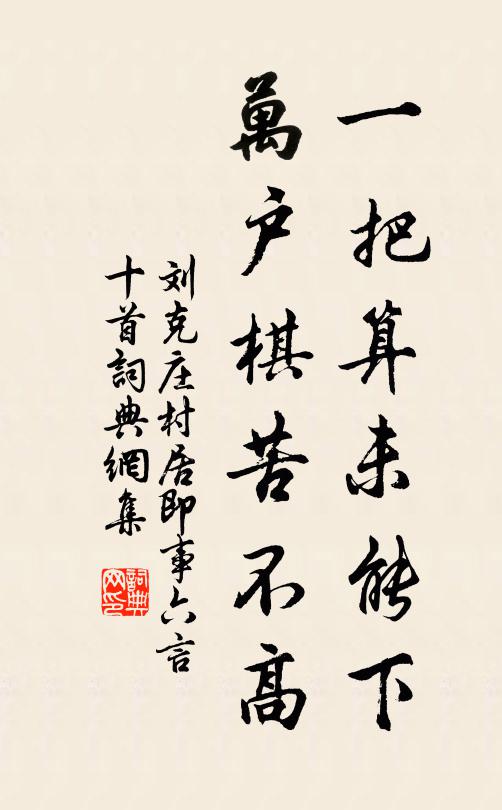 一把算未能下
萬户棋苦不高
刘克庄村居即事六言
十首詞典網集
詞典网印